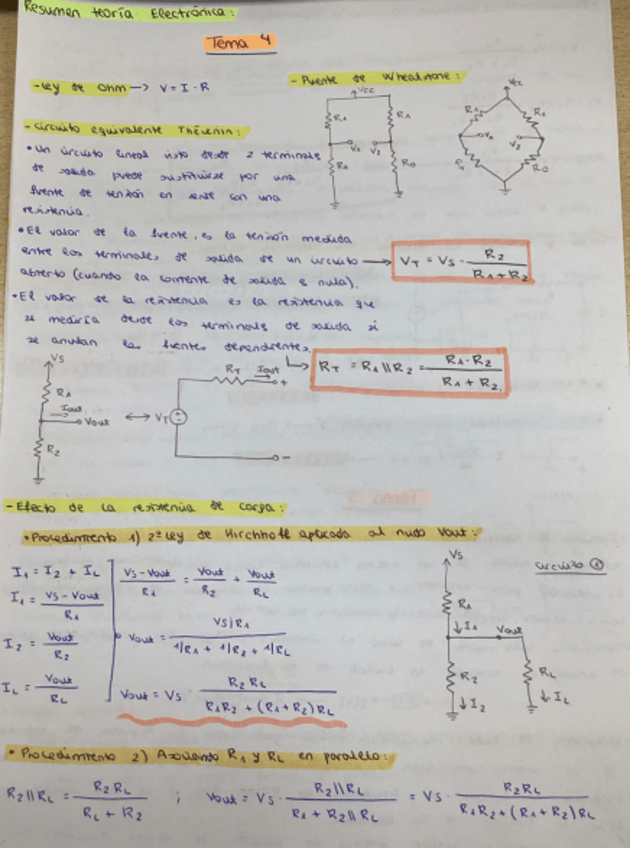 Resumen teoría Electrónica:
Tema 4
- Ley de Ohm → V = I · R
- Puente de Wheatstone:
Vcc
Vcc
R1
R1
R1
R1
V1
V2
V1
V2
R0
R0
- Circuito equivalente Thévenin:
• Un circuito lineal visto desde 2 terminales
de salida puede sustituirse por una
fuente de tensión en serie con una
resistencia.
• El valor de la fuente, es la tensión medida
entre los terminales de salida de un circuito →
abierto (cuando la corriente de salida es nula).
VT = VS · R2 / (R1 + R2)
• El valor de la resistencia es la resistencia que
se mediría desde los terminales de salida si
se anulan las fuentes dependientes.
RT = R1 || R2 = R1 · R2 / (R1 + R2)
VS
R1
Iout
Vout
R2
↔
VT
RT
Iout
+
-
- Efecto de la resistencia de carga:
• Procedimiento 1) 2ª Ley de Kirchhoff aplicada al nudo Vout:
I1 = I2 + IL
I1 = (VS - Vout) / R1
I2 = Vout / R2
IL = Vout / RL
(VS - Vout) / R1 = Vout / R2 + Vout / RL
Vout = (VS/R1) / (1/R1 + 1/R2 + 1/RL)
Vout = VS R2 RL / (R1R2 + (R1+R2)RL)
VS
Circuito ①
R1
↓I1
Vout
R2
RL
↓I2
↓IL
• Procedimiento 2) Asociando R1 y RL en paralelo:
R2 || RL = R2 RL / (RL + R2) ; Vout = VS · R2 || RL / (R1 + R2 || RL) = VS · R2RL / (R1R2 + (R1+R2)RL)